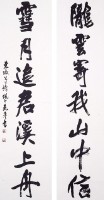 隴雲寄我山中信
雪月追君溪上舟